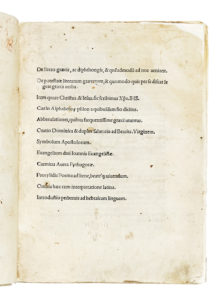 De literis græcis, ac diphthongis, & quẽadmodũ ad nos ueniant.
De potestate literarum græcarum, & quomodo quis per se discat legere græca uerba.
Item quare Christus & Iesus sic scribimus Xp̃s, Iħs.
Cur in Alphabeto y psilon a quibusdam fio dicitur.
Abbreuiationes, quibus frequentissime græci utuntur.
Oratio Dominica & duplex Salutatio ad Beatiss. Virginem.
Symbolum Apostolorum.
Euangelium diui Ioannis Euangelistæ.
Carmina Aurea Pythagoræ.
Phocylidis Poema ad bene, beateq; uiuendum.
Omnia hæc cum interpretatione latina.
Introductio perbreuis ad hebraicam linguam.